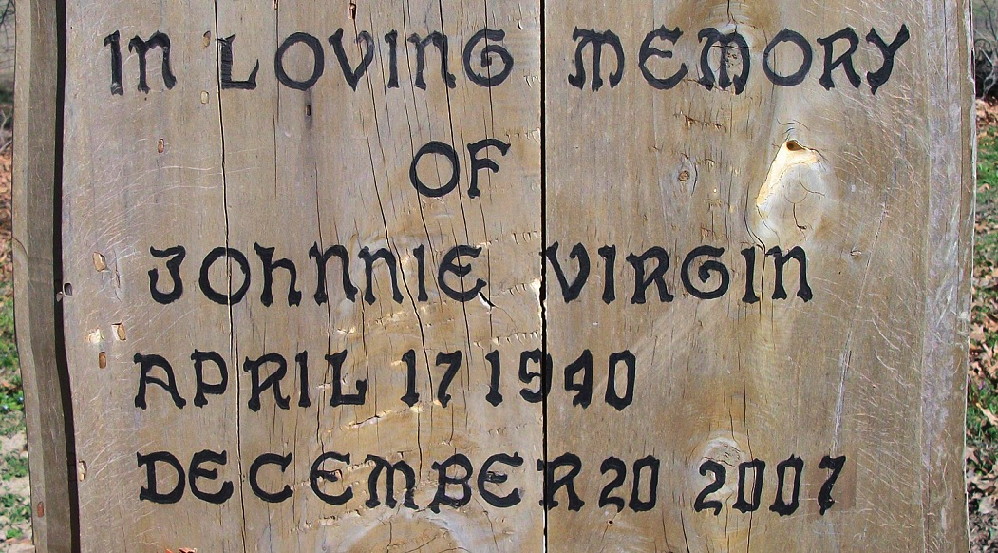 In Loving Memory
of
Johnnie Virgin
April 17 1940
December 20 2007